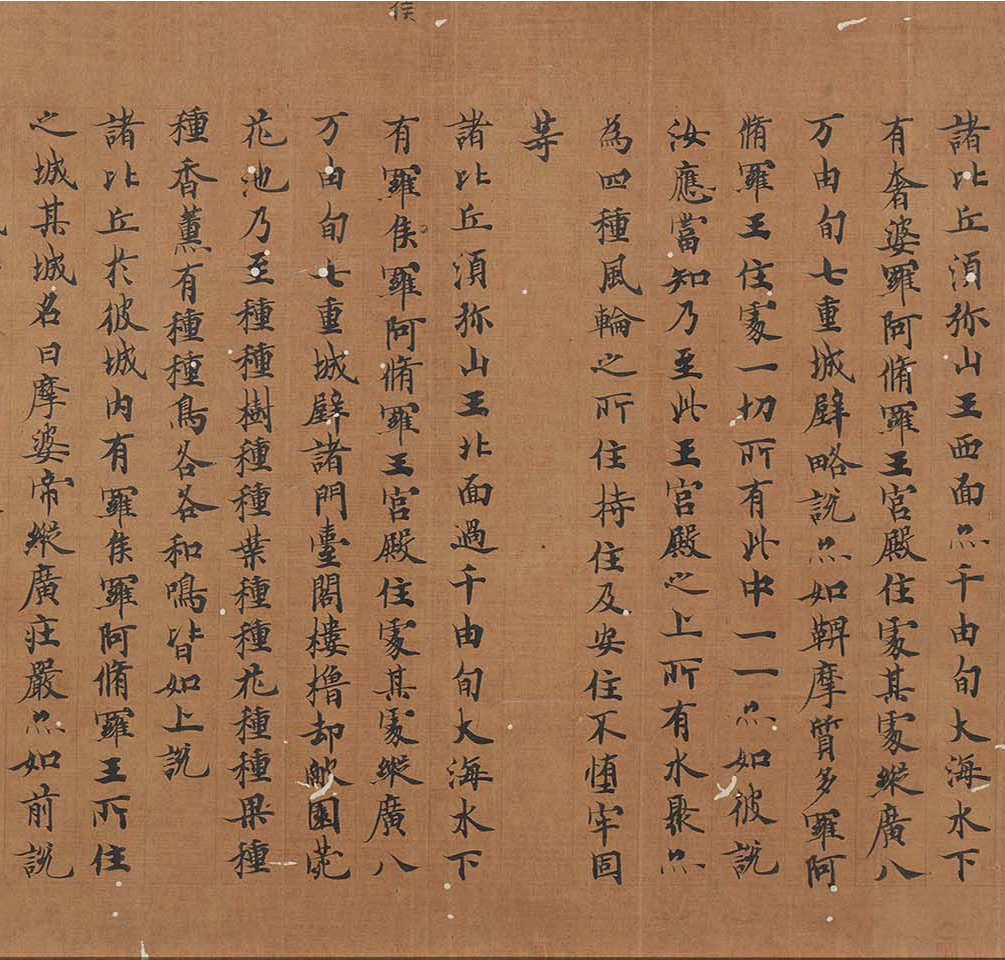 侯
諸比丘須弥山王西面亦千由旬大海水下
有奢婆羅阿脩羅王宮殿住處其處縱廣八
万由旬七重城壁略說亦如鞞摩質多羅阿
脩羅王住處一切所有此中一一亦如彼說
汝應當知乃至此王宮殿之上所有水聚亦
為四種風輪之所住持住及安住不墮牢固
等
諸比丘須弥山王北面過千由旬大海水下
有羅侯羅阿脩羅王宮殿住處其處縱廣八
万由旬七重城壁諸門臺閣樓櫓却敵園苑
花池乃至種種樹種種葉種種花種種果種
種香薰有種種鳥各各和鳴皆如上說
諸比丘於彼城內有羅侯羅阿脩羅王所住
之城其城名曰摩婆帝縱廣莊嚴亦如前說